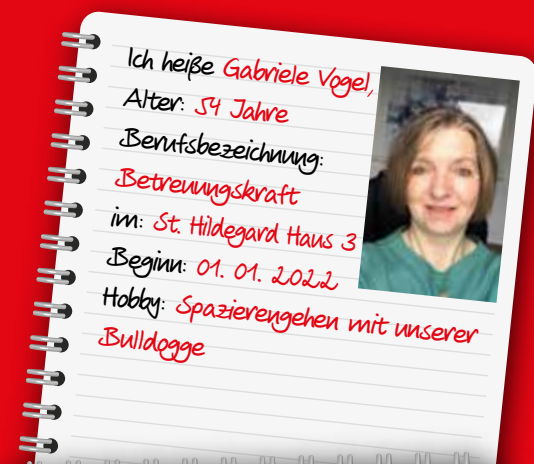 Ich heiße Gabriele Vogel,
Alter: 54 Jahre
Berufsbezeichnung:
Betreuungskraft
im: St. Hildegard Haus 3
Beginn: 01. 01. 2022
Hobby: Spazierengehen mit unserer
Bulldogge